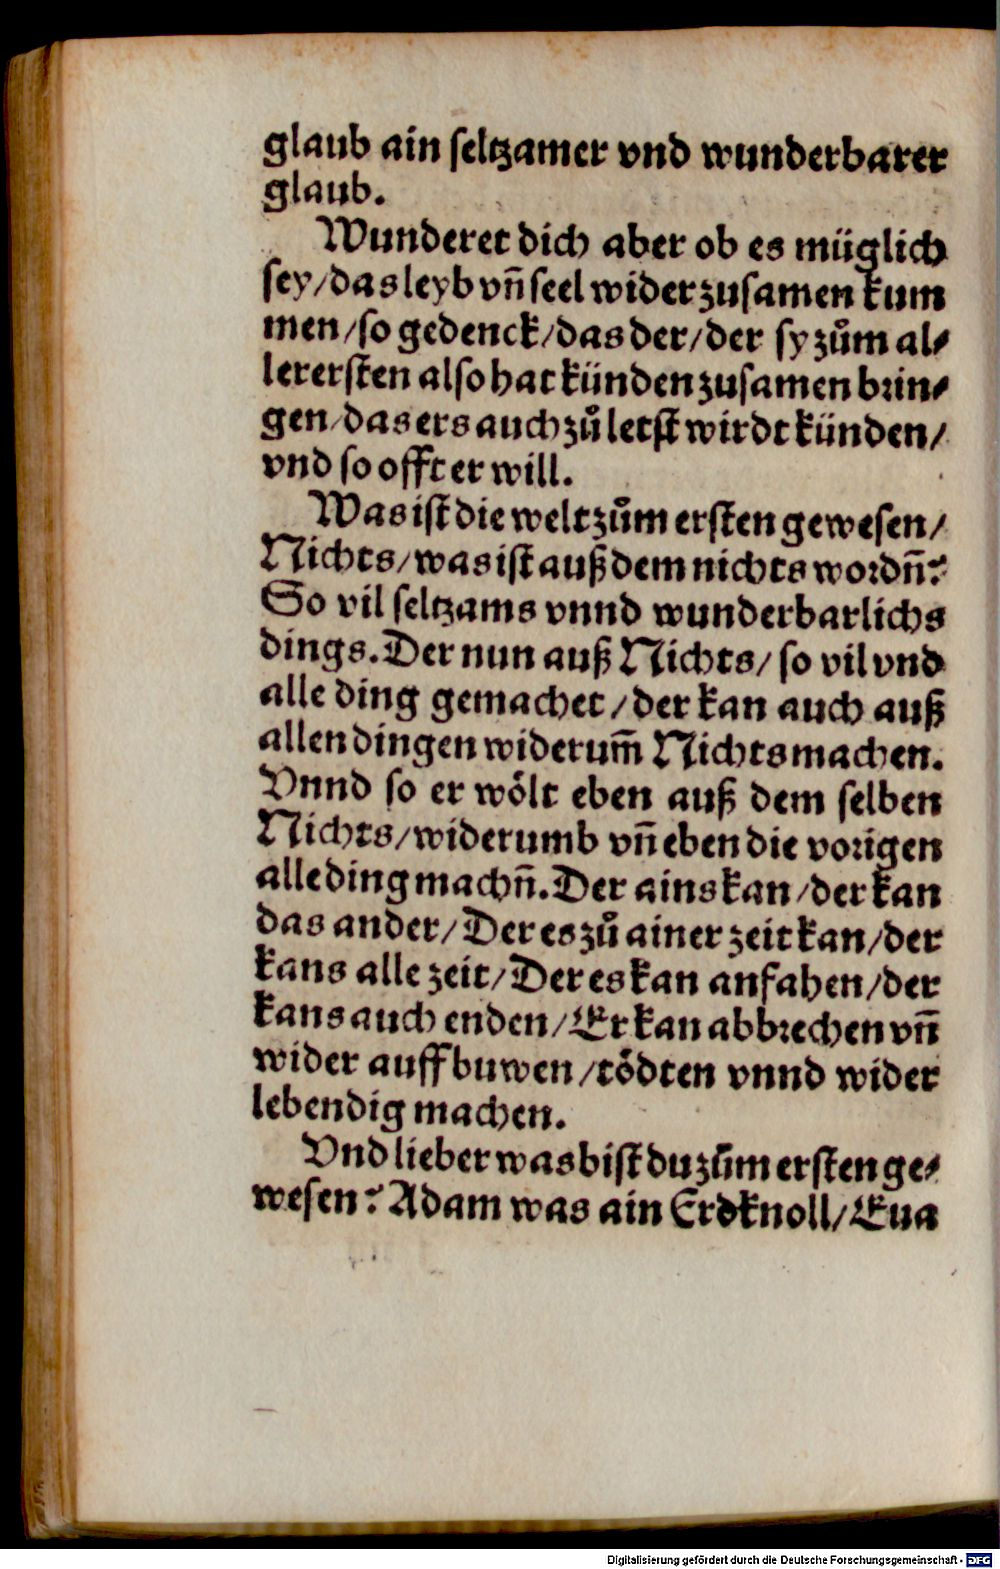 glaub ain seltzamer vnd wunderbarer
glaub.
Wunderet dich aber ob es müglich
sey/das leyb vñ seel wider zusamen kum
men/so gedenck/das der/der sy zům al⸗
lerersten also hat künden zusamen brin⸗
gen/das ers auch zů letst wirdt künden/
vnd so offt er will.
Was ist die welt zům ersten gewesen/
Nichts/was ist auß dem nichts wordñ?
So vil seltzams vnnd wunderbarlichs
dings. Der nun auß Nichts/ so vil vnd
alle ding gemachet/der kan auch auß
allen dingen widerum̃ Nichts machen.
Vnnd so er wölt eben auß dem selben
Nichts/widerumb vñ eben die vorigen
alle ding machñ. Der ains kan/der kan
das ander/Der es zů ainer zeit kan/der
kans alle zeit/Der es kan anfahen/der
kans auch enden/Er kan abbrechen vñ
wider auffbuwen/tödten vnnd wider
lebendig machen.
Vnd lieber was bist du zům ersten ge⸗
wesen? Adam was ain Erdknoll/Eua
Digitalisierung gefördert durch die Deutsche Forschungsgemeinschaft - DFG